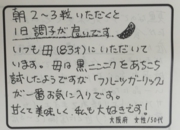 朝2〜3粒いただくと
1日調子が良いです。
いつも母(83才)にいただいて
います。母は黒ニンニクをあちこち
試したようですが「フルーツガーリック」
が一番お気に入りです。
甘くて美味しく、私も大好きです!
大阪府 女性/50代